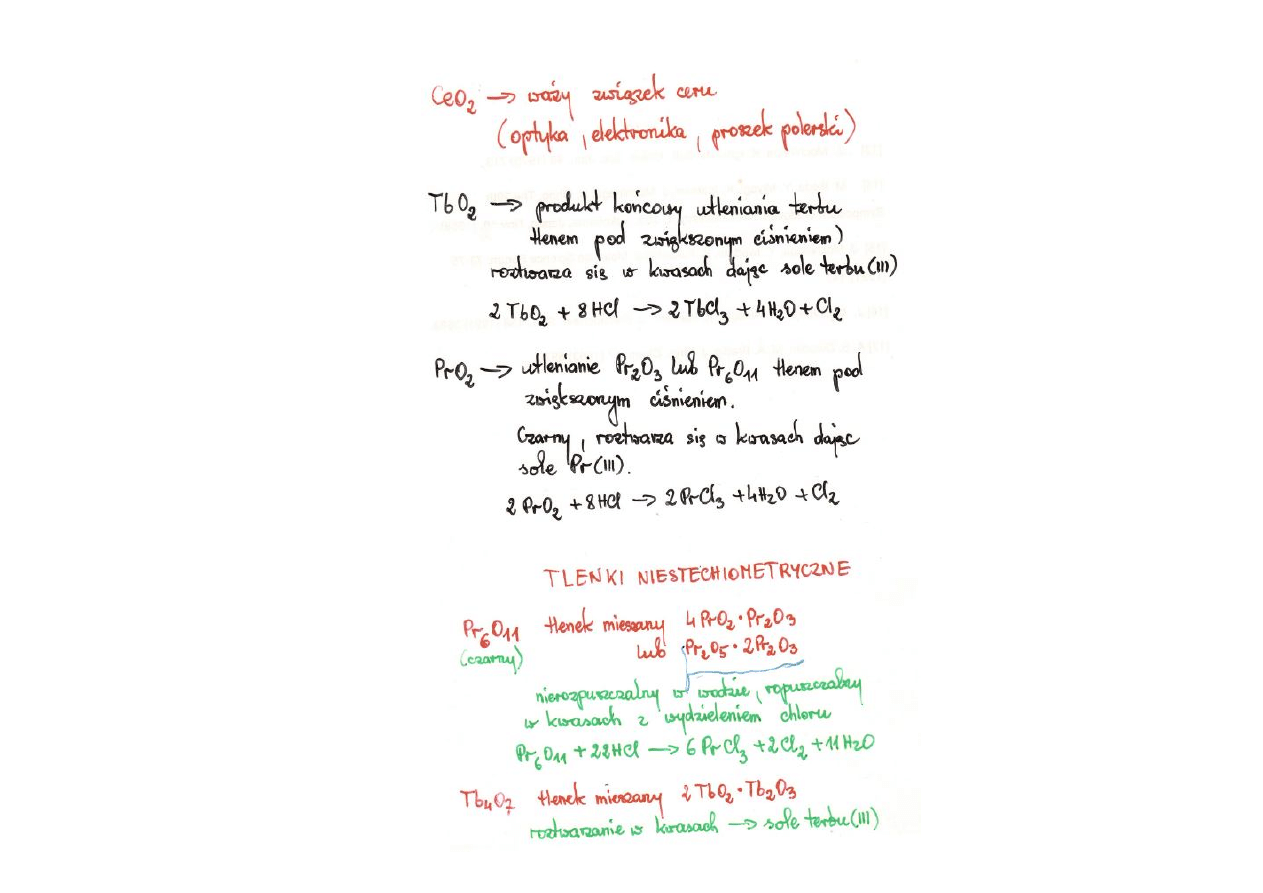 CeO₂ → ważny związek ceru
(optyka, elektronika, proszek polerski)
TbO₂ → produkt końcowy utleniania terbu
tlenem pod zwiększonym ciśnieniem)
roztwarza się w kwasach dając sole terbu(III)
2 TbO₂ + 8 HCl → 2 TbCl₃ + 4H₂O + Cl₂
PrO₂ → utlenianie Pr₂O₃ lub Pr₆O₁₁ tlenem pod
zwiększonym ciśnieniem.
Czarny, roztwarza się w kwasach dając
sole Pr(III).
2 PrO₂ + 8HCl → 2 PrCl₃ + 4H₂O + Cl₂
TLENKI NIESTECHIOMETRYCZNE
Pr₆O₁₁ tlenek mieszany 4 PrO₂ · Pr₂O₃
(czarny) lub Pr₂O₅ · 2Pr₂O₃
nierozpuszczalny w wodzie, ropuszczalny
w kwasach z wydzieleniem chloru
Pr₆O₁₁ + 22HCl → 6 PrCl₃ + 2Cl₂ + 11H₂O
Tb₄O₇ tlenek mieszany 2 TbO₂ · Tb₂O₃
roztwarzanie w kwasach → sole terbu(III)